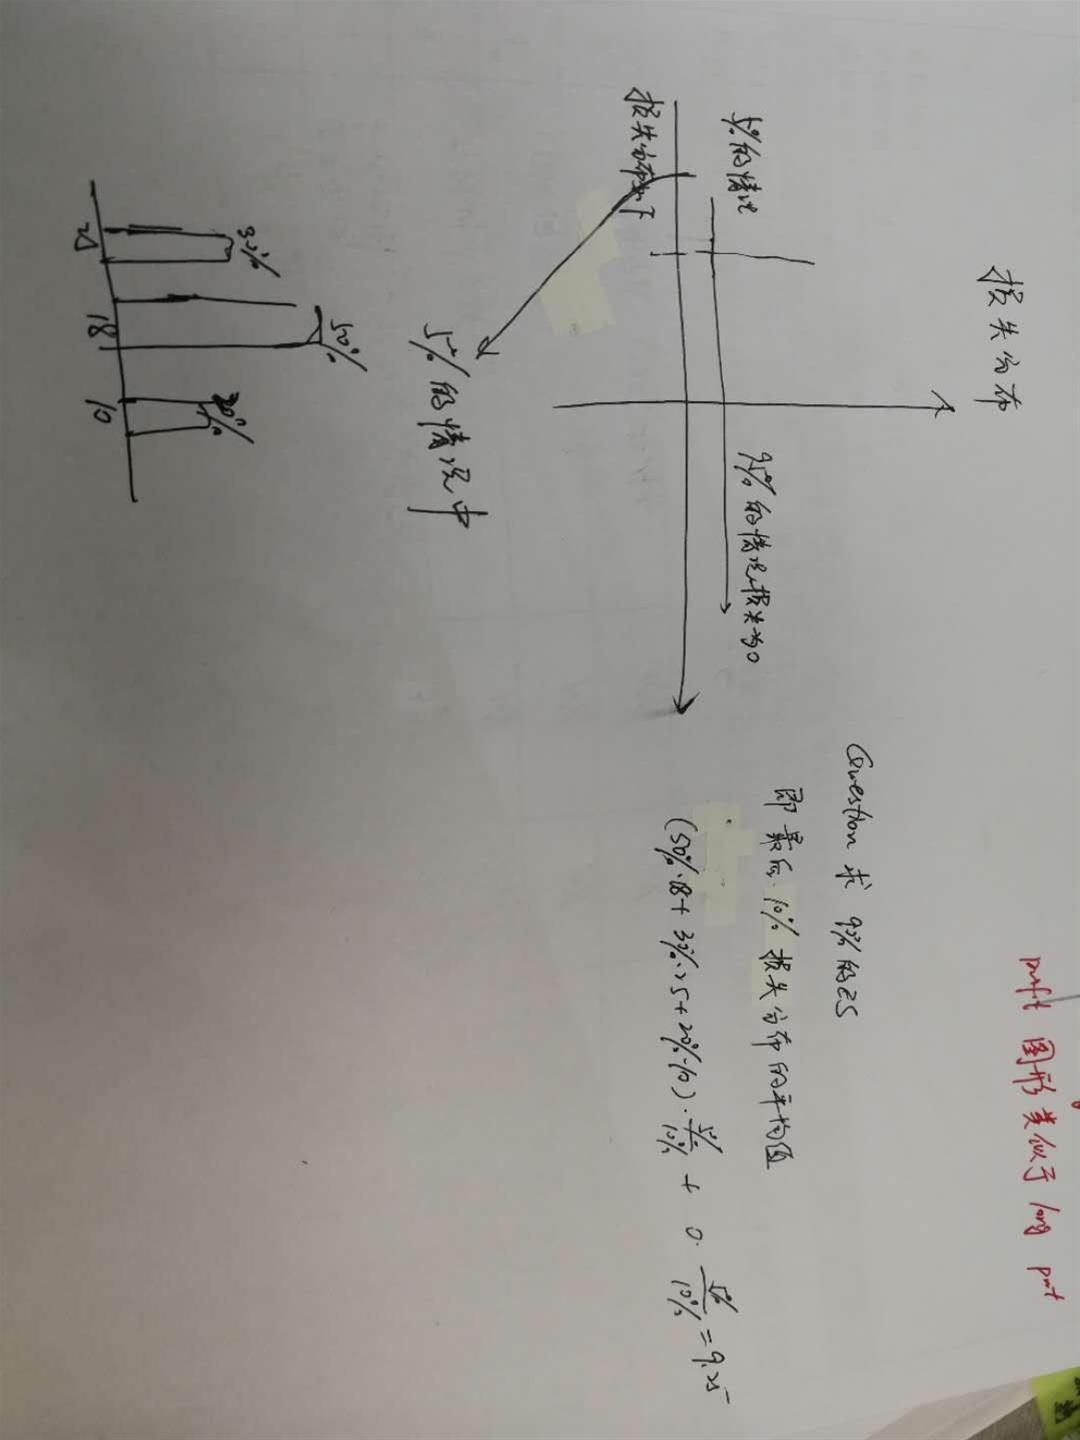 损失分布
5%的情况
95%的情况损失为0
损失分布如下
5%的情况中
30%
50%
20%
25
18
10
profit 图形类似于 long put
Question 求 90%的ES
即最后 10% 损失分布的平均值
(50%·18 + 30%·25 + 20%·10) · 5%/10% + 0 · 5%/10% = 9.25